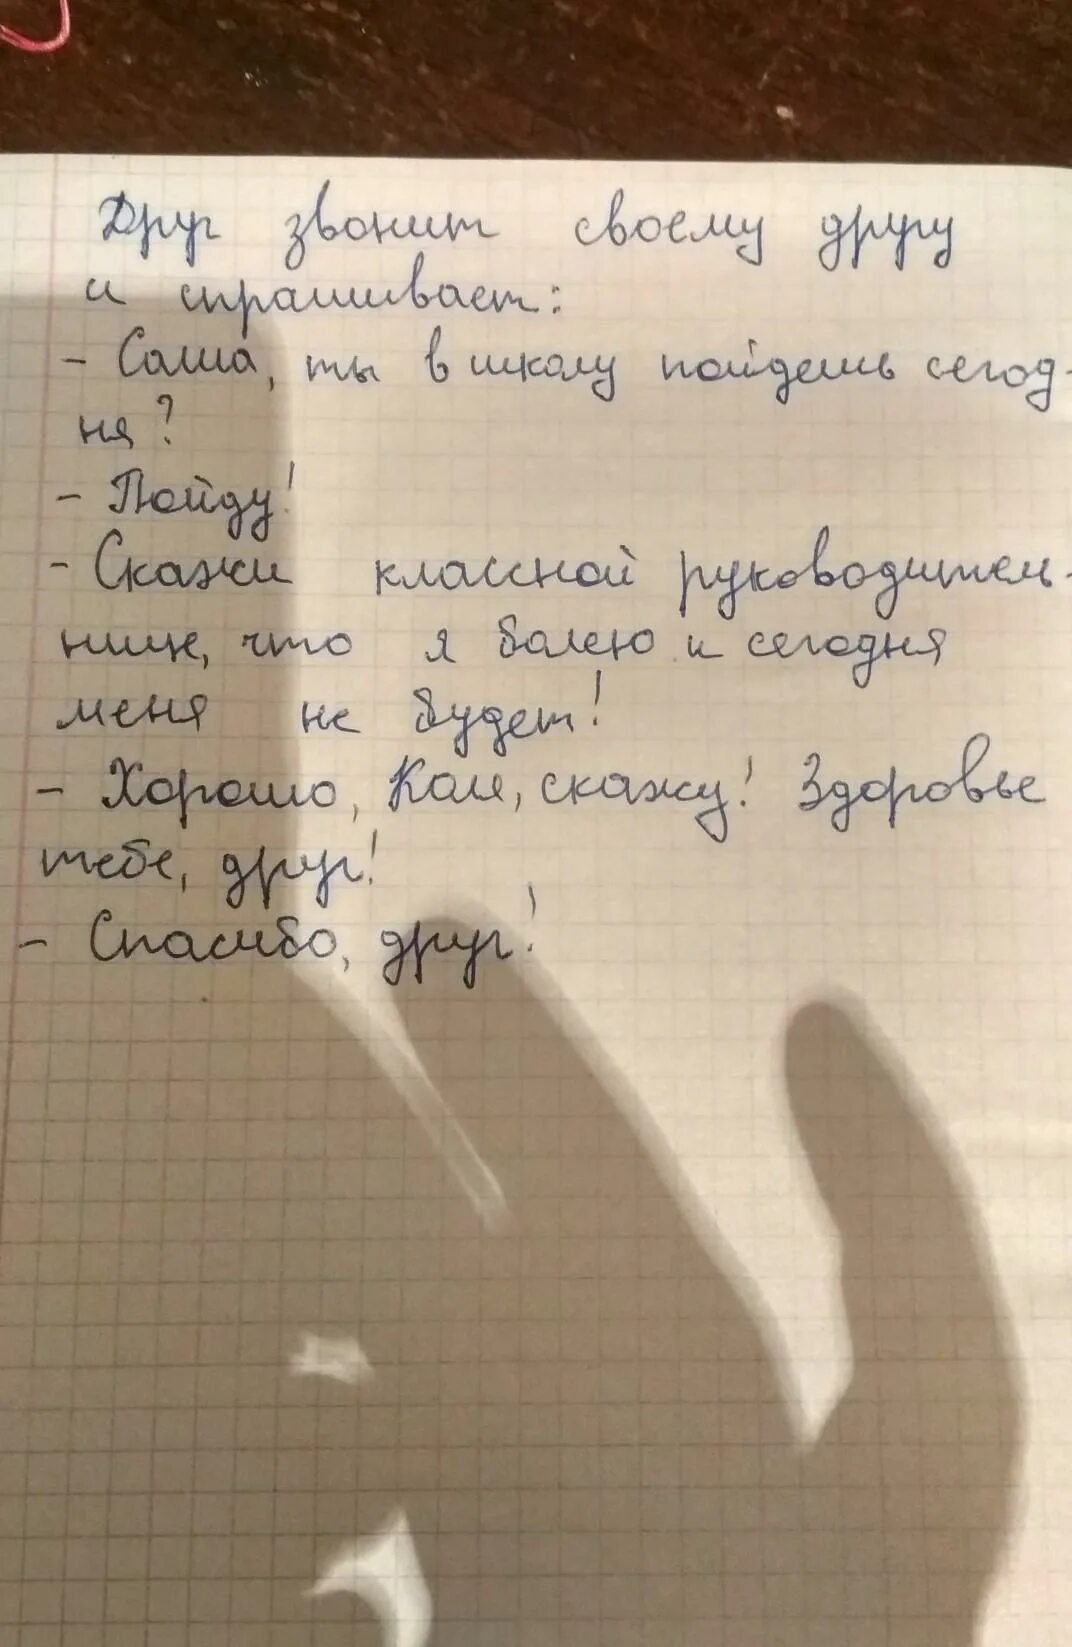 Друг звонит своему другу
и спрашивает:
- Саша, ты в школу пойдешь сегод-
ня?
- Пойду!
- Скажи классной руководитель-
нице, что я болею и сегодня
меня не будет!
- Хорошо, Коля, скажу! Здоровье
тебе, друг!
- Спасибо, друг!